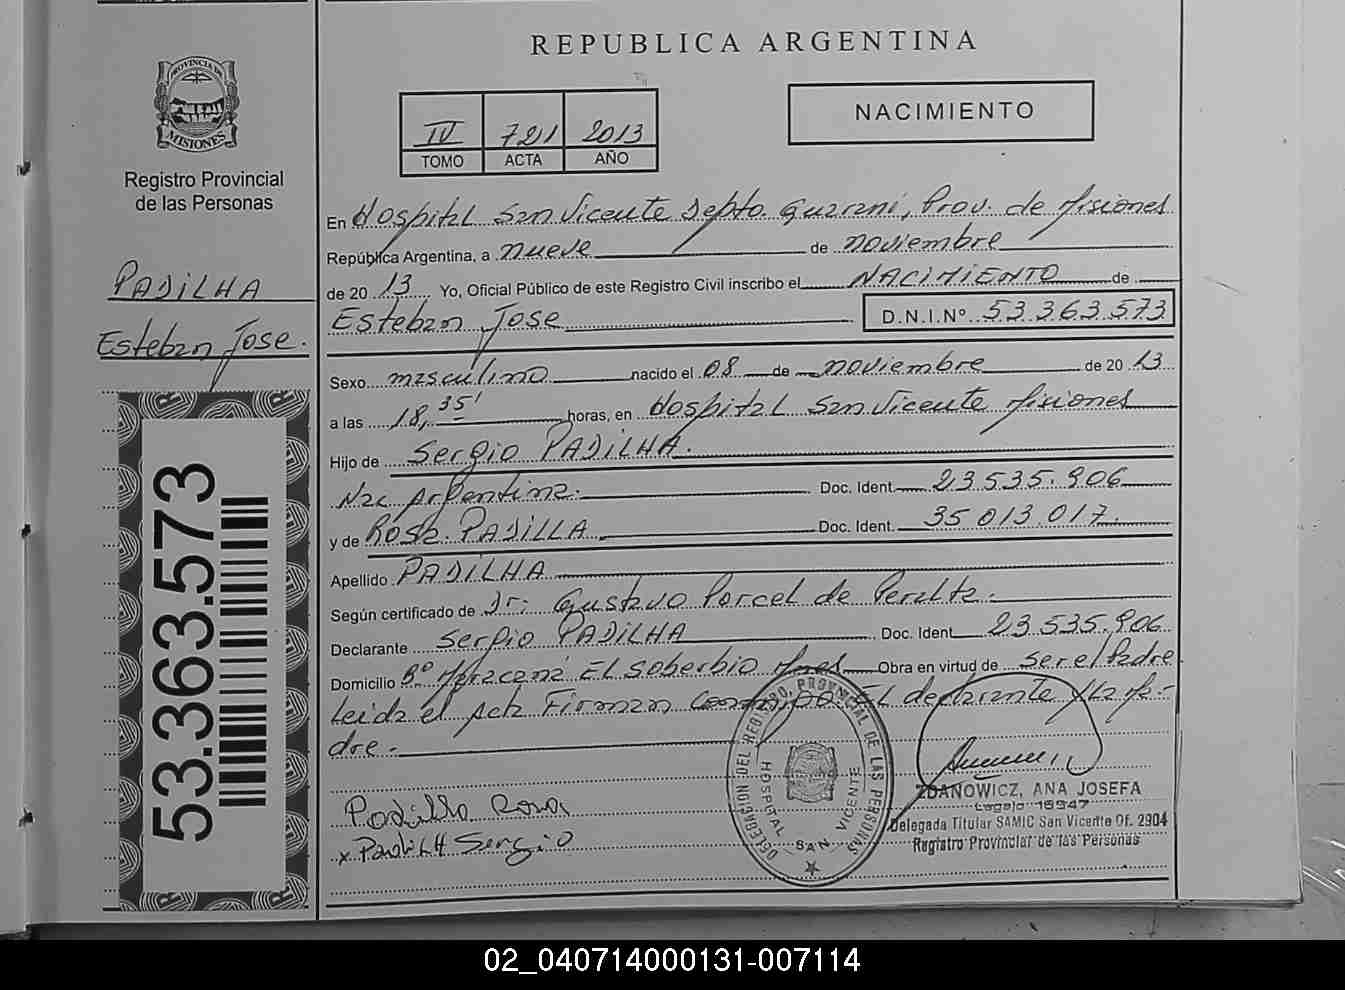 REPUBLICA ARGENTINA
PROVINCIA DE
MISIONES
Registro Provincial
de las Personas
PADILHA
Esteban Jose.
53.363.573
IV 721 2013
TOMO ACTA AÑO
NACIMIENTO
En Hospital San Vicente Depto. Guarani, Prov. de Misiones
República Argentina, a nueve de noviembre
de 2013 Yo, Oficial Público de este Registro Civil inscribo el NACIMIENTO de
Esteban Jose D.N.I.Nº 53.363.573
Sexo masculino nacido el 08 de noviembre de 2013
a las 18,35' horas, en Hospital San Vicente Misiones
Hijo de Sergio PADILHA.
Nac Argentina. Doc. Ident. 23.535.906
y de Rosa. PADILLA Doc. Ident. 35.013.017.
Apellido PADILHA
Según certificado de Dr: Gustavo Porcel de Peralta.
Declarante Sergio PADILHA Doc. Ident. 23.535.906
Domicilio Bº Maracaná El Soberbio Mnes Obra en virtud de ser el Padre
Leida el Acta Firman Conmigo: El declarante y La Ma-
dre.
Padilla Rosa
x PadilH Sergio
DELEGACION DEL REGISTRO PROVINCIAL DE LAS PERSONAS
HOSPITAL SAN VICENTE
ZDANOWICZ, ANA JOSEFA
Legajo 16947
Delegada Titular SAMIC San Vicente Of. 2904
Registro Provincial de las Personas
02_040714000131-007114